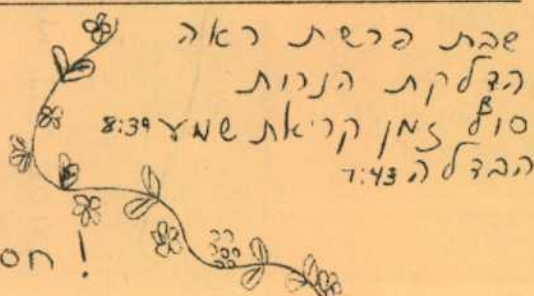 שבת פרשת ראה
הדלקת הנרות
סוף זמן קריאת שמע 8:39
הבדלה 7:43